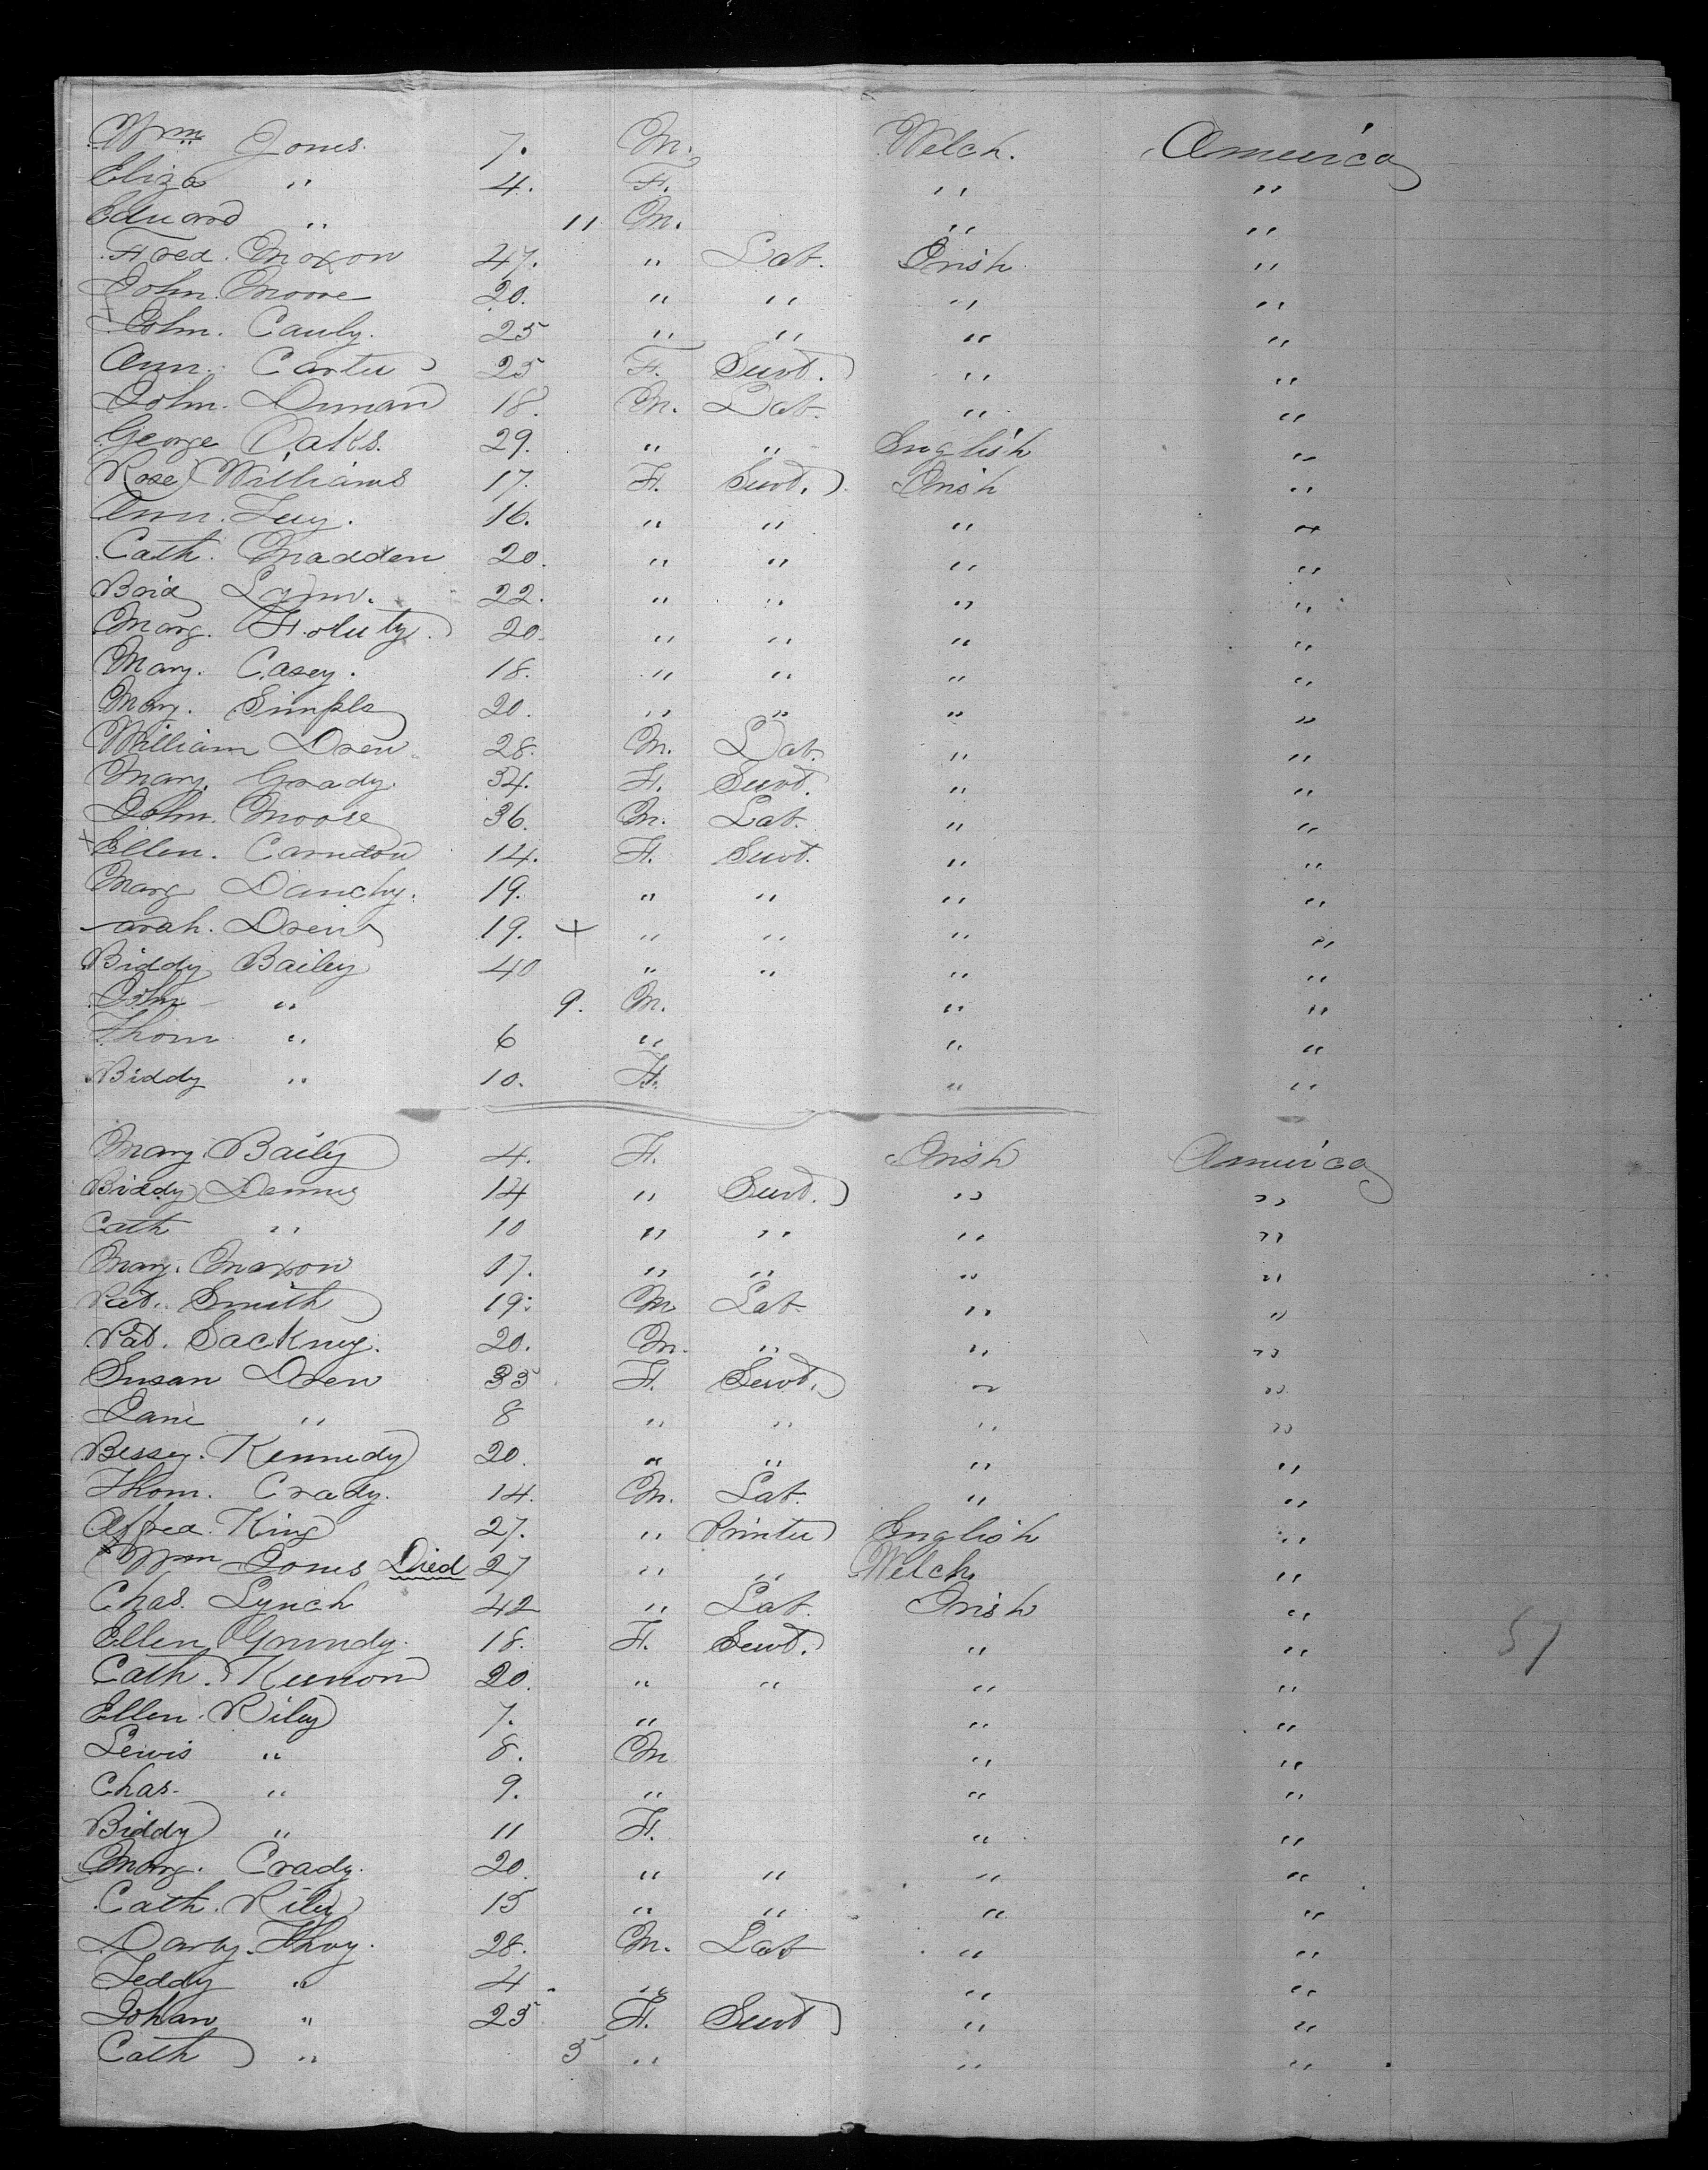 Wm Jones. 7. M. Welch. America
Eliza " 4. F. " "
Edward " 11 M. " "
Fred. Moxon 47. " Lab. Irish "
John. Moore 20. " " " "
John. Cauly. 25 " " " "
Ann. Carter 25 F. Servt. " "
John. Dunan 18. M. Lab. " "
George Oaks. 29. " " English "
Rose Williams 17. F. Servt. Irish "
Ann. 16. " " " "
Cath. Madden 20. " " " "
Brid 22. " " " "
Marg. 20. " " " "
Mary. Casey. 18. " " " "
Mary. Simpla 20. " " " "
William Drew 28. M. Lab. " "
Mary. Grady. 34. F. Servt. " "
John. Moore 36. M. Lab. " "
Ellen. 14. F. Servt. " "
Marg Danchy. 19. " " " "
arah. Drew 19. + " " " "
Biddy Bailey 40 " " " "
John " 9. M. " "
Thom " 6 " " "
Biddy " 10. F. " "
Mary. Baily 4. F. Irish America
Biddy Dennis 14 " Servt. " "
Cath " 10 " " " "
Mary. Maxon 17. " " " "
Pat. Smith 19. M Lab. " "
Pat. 20. M. " " "
Susan Drew 35 F. Servt. " "
Jane " 8 " " " "
Bessey. Kennedy 20. " " " "
Thom. Crady. 14. M. Lab. " "
Alfred. King 27. " Printer English "
Wm Jones Died 27 " " Welch. "
Chas. Lynch 42 " Lab. Irish "
Ellen Grundy. 18. F. Servt. " "
Cath. 20. " " " "
Ellen. Riley 7. " " "
Lewis " 8. M " "
Chas. " 9. " " "
Biddy " 11 F. " "
Marg. Crady. 20. " " " "
Cath. Riley 15 " " " "
Darby. Thoy. 28. M. Lab " "
Teddy " 4 " " "
Johan " 25 F. Servt " "
Cath " 5 " " "